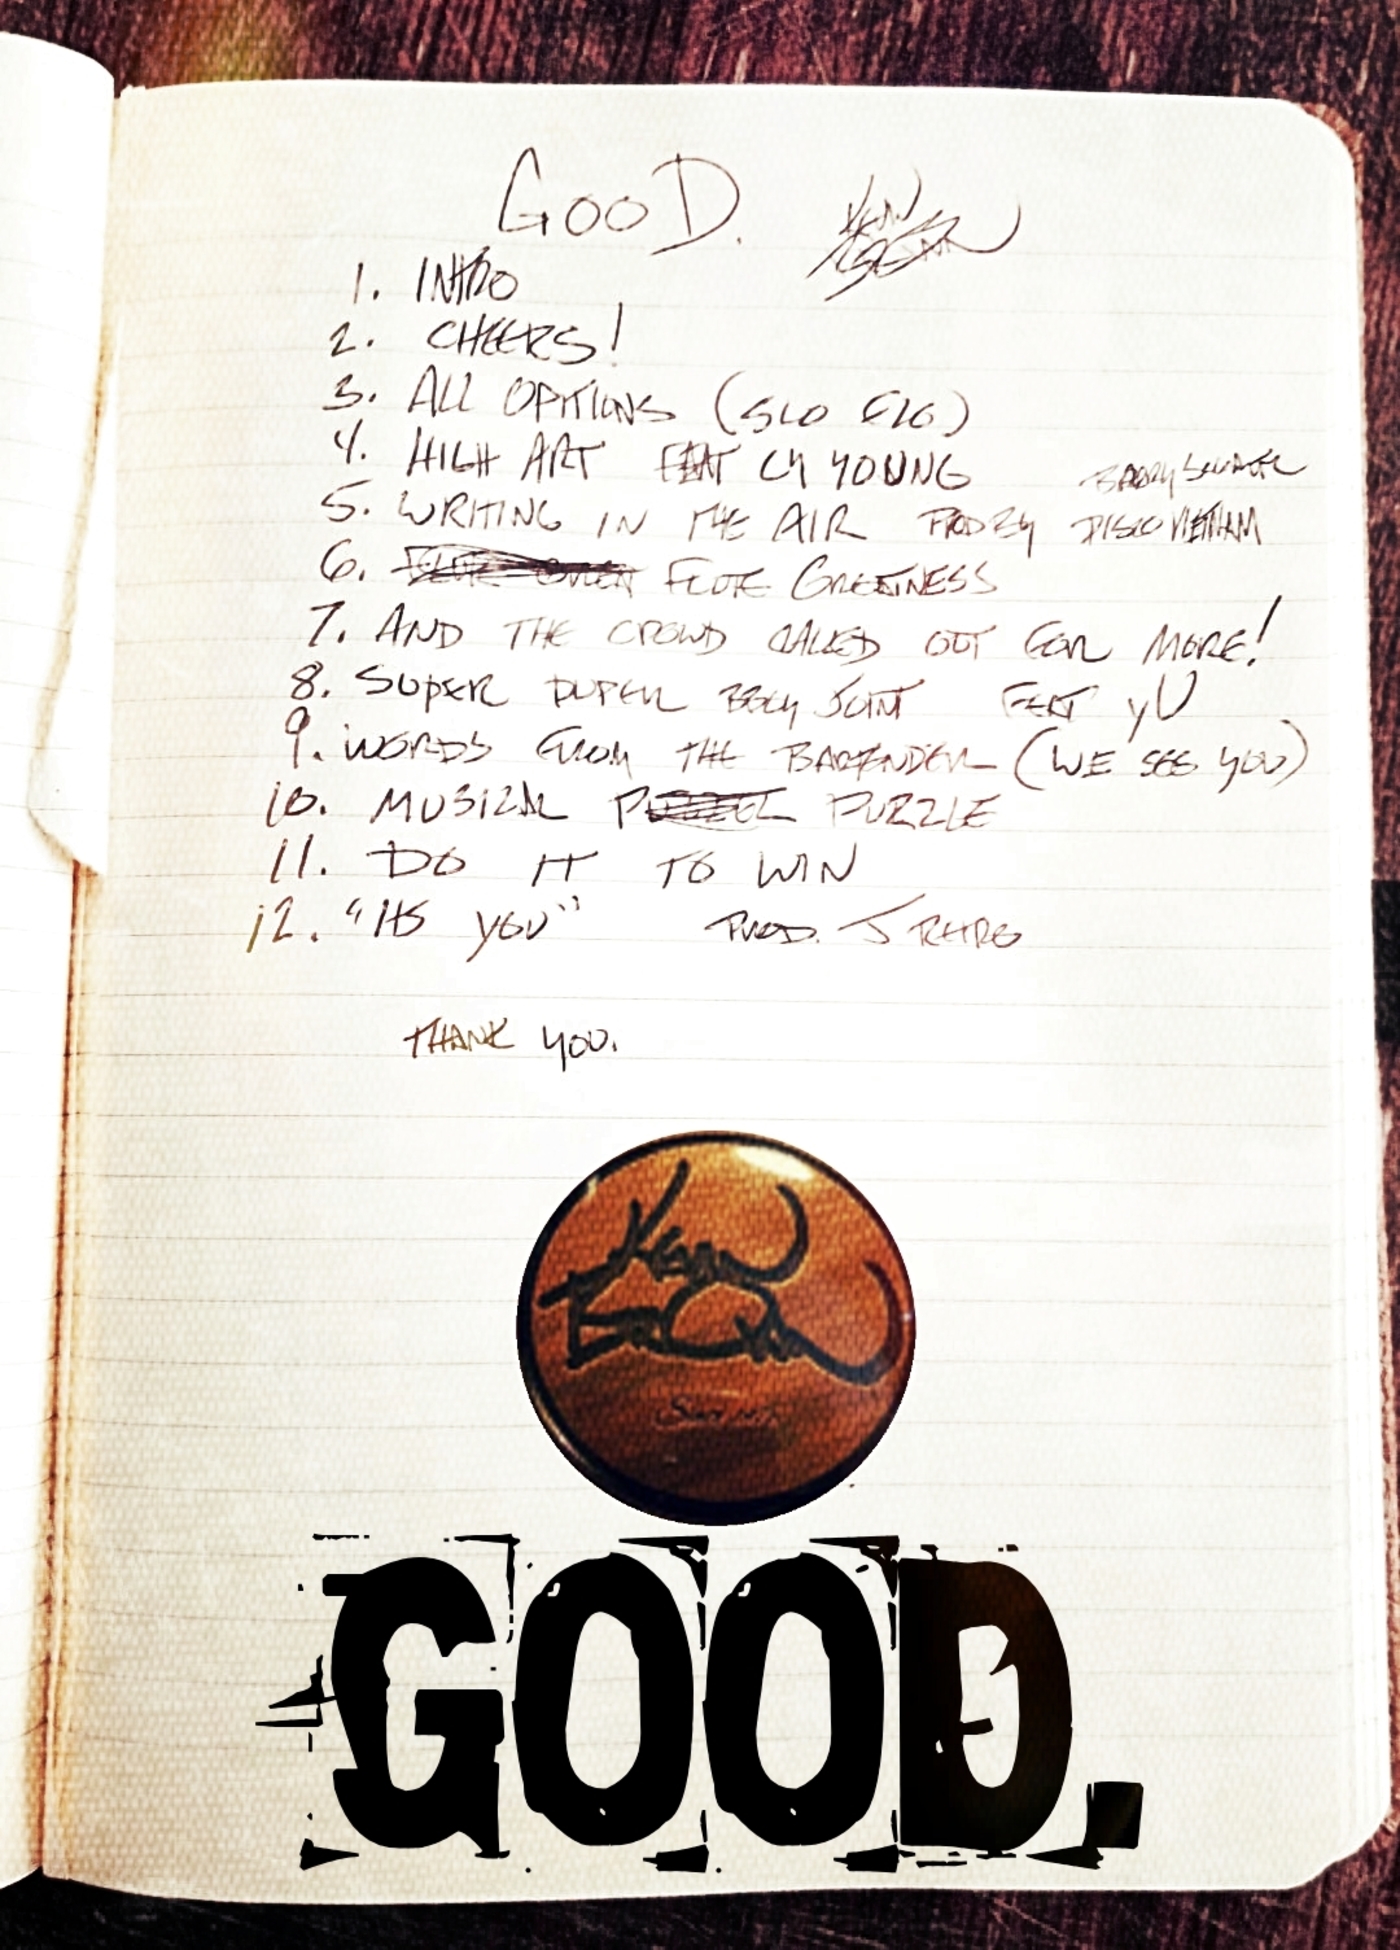 GOOD.
1. INTRO
2. CHEERS!
3. ALL OPTIONS (SLO FLO)
4. HIGH ART FEAT CY YOUNG
5. WRITING IN THE AIR PROD BY DISCO VIETNAM
6. FLUTE GREATNESS
7. AND THE CROWD CALLED OUT FOR MORE!
8. SUPER DUPER BBOY JOINT FEAT yU
9. WORDS FROM THE BARTENDER (WE SEE YOU)
10. MUSICAL PUZZLE
11. DO IT TO WIN
12. "ITS YOU" PROD. J RHTRO
THANK YOU.
GOOD.